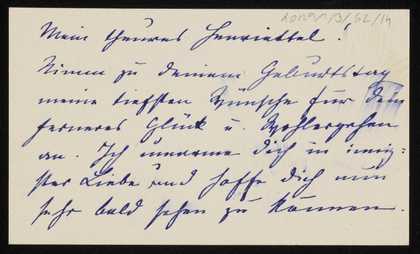 Mein theures Henriettel!
Nimm zu deinem Geburtstag
meine tiefsten Wünsche für Dein
ferneres Glück u. Wohlergehen
an. Ich umarme dich in innig=
ster Liebe und hoffe dich nun
sehr bald sehen zu können.